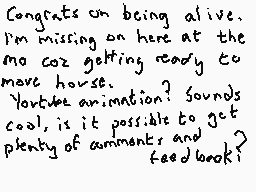 Congrats on being alive.
I'm missing on here at the
mo coz getting ready to
move house.
Youtube animation? Sounds
cool, is it possible to get
plenty of comments and
feedback?